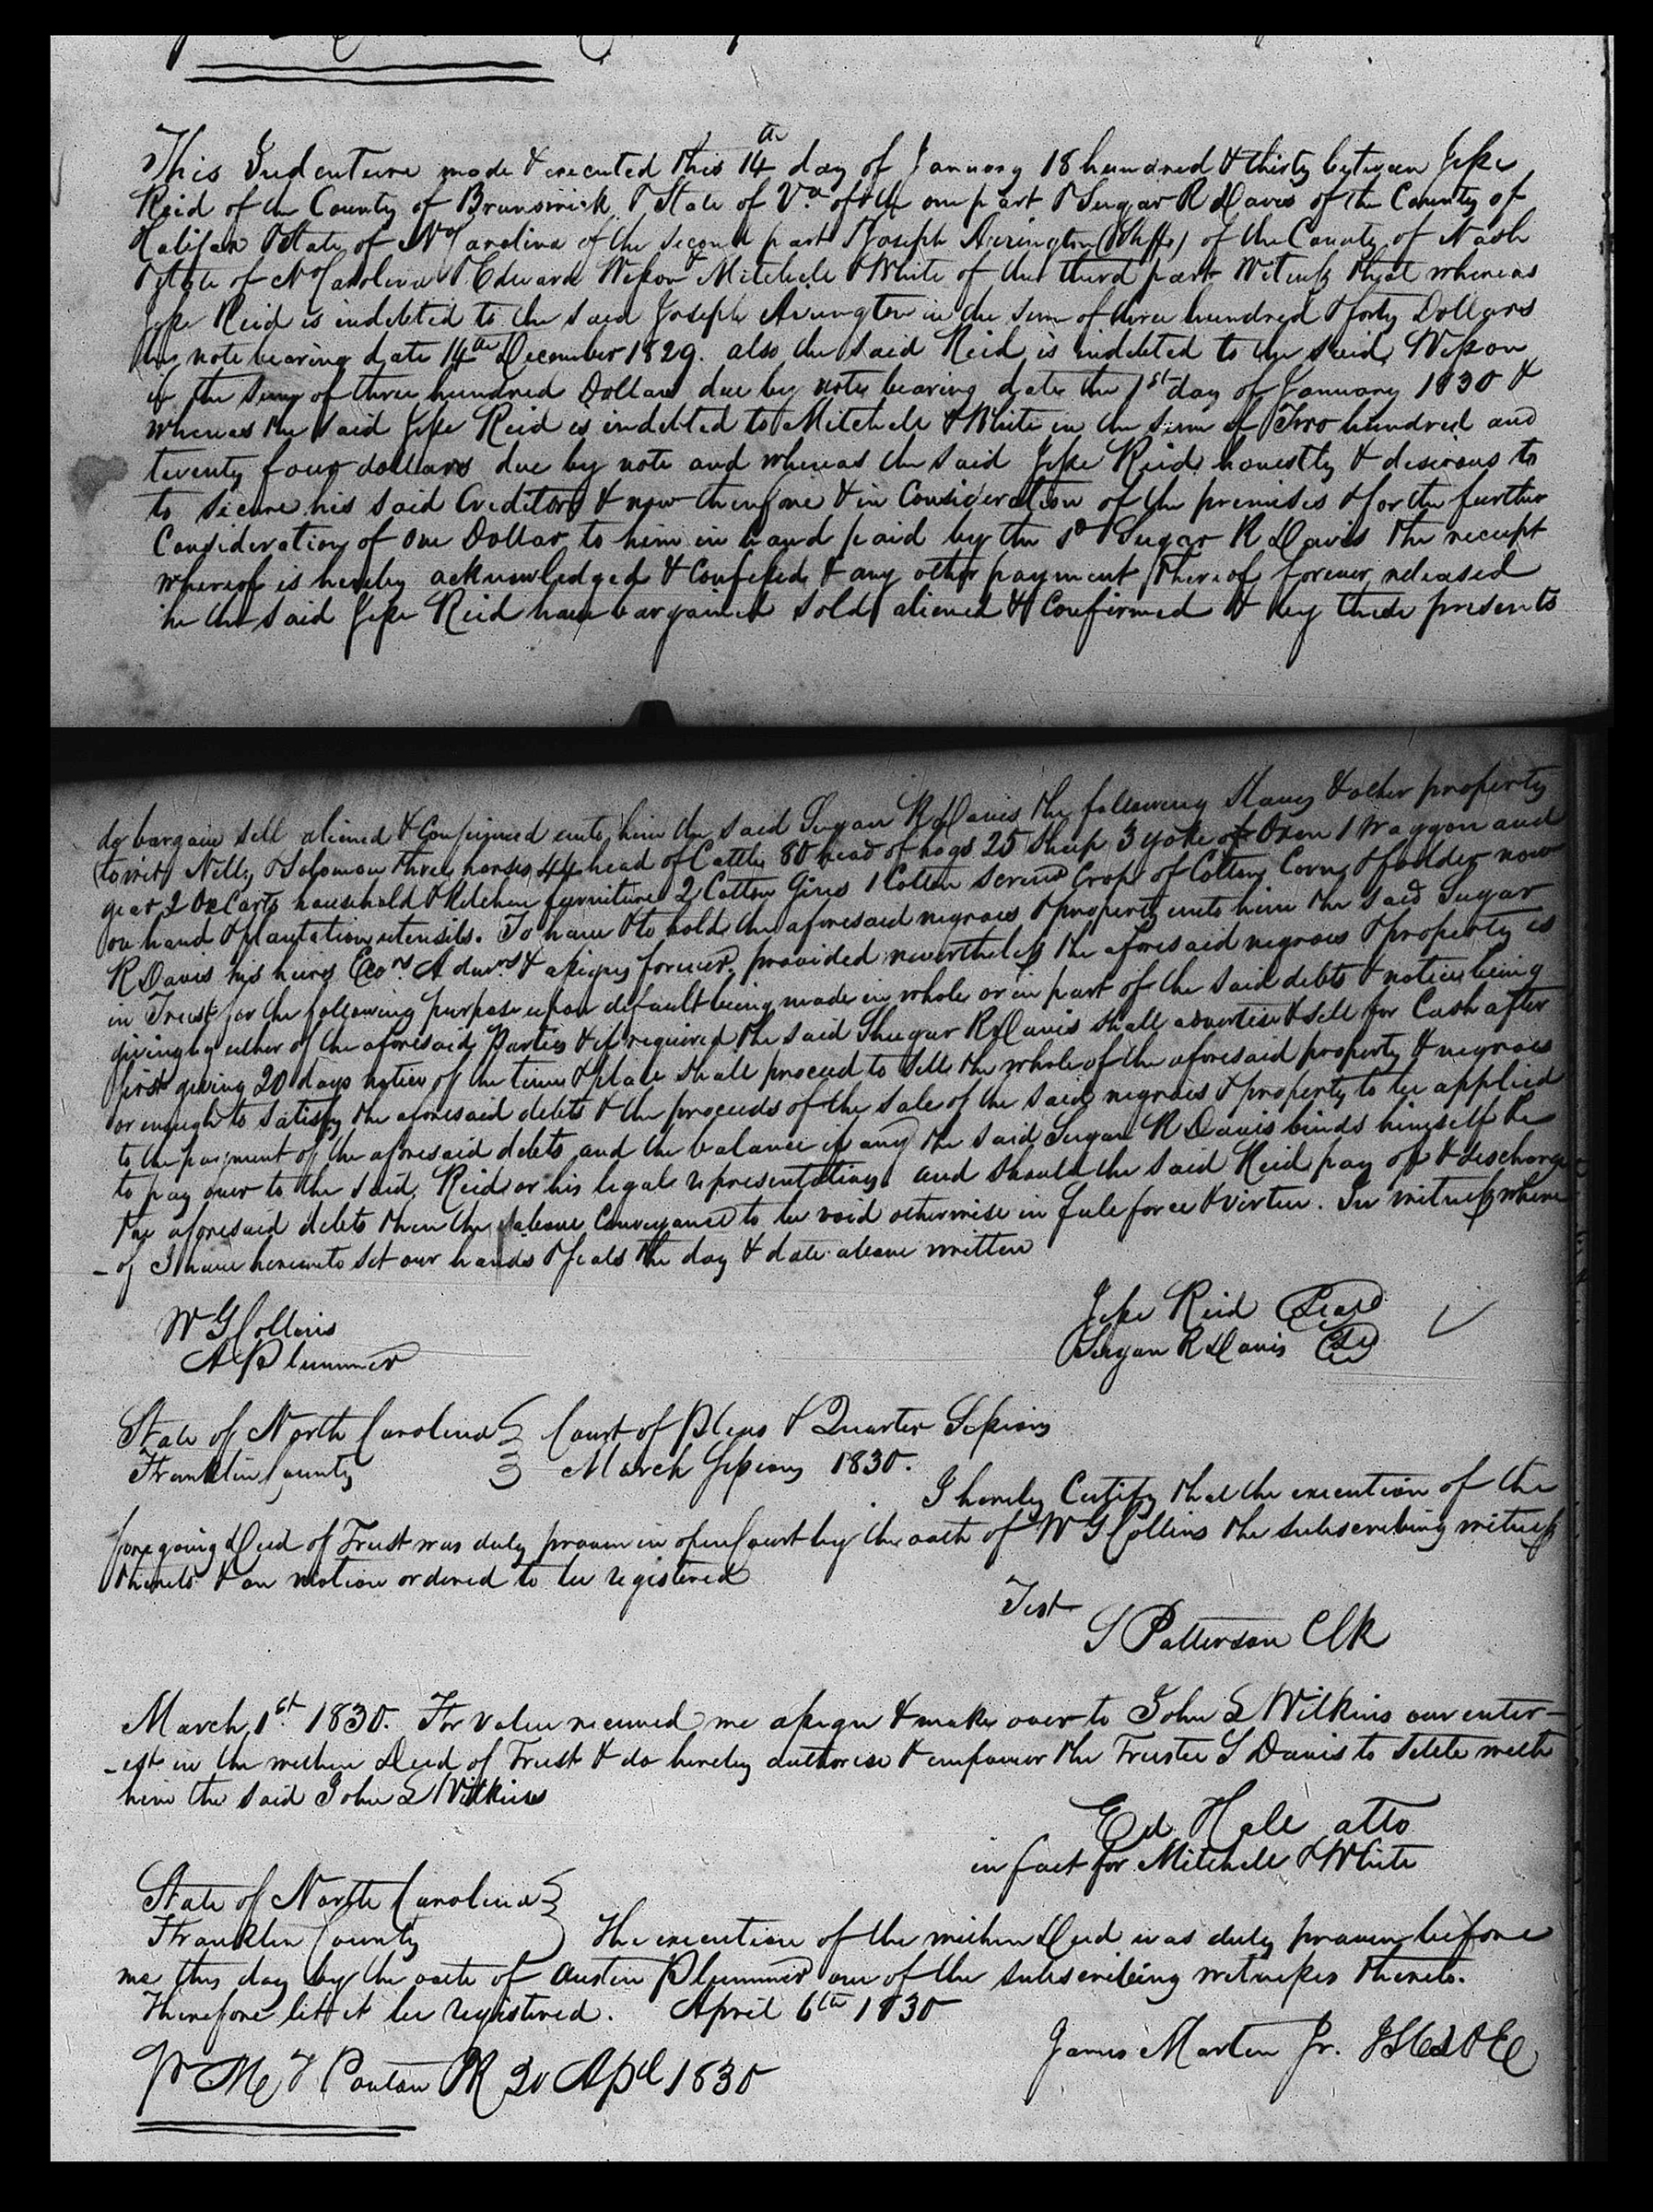 This Indenture made & executed this 14th day of January 18 hundred & thirty between Jesse
Reid of the County of Brunswick & State of Va. of the one part & Sugar R Davis of the County of
Halifax & State of No Carolina of the second part & Joseph Arrington (Shff) of the County of Nash
& State of No Carolina & Edward Wesson & Mitchell & White of the third part Witness that whereas
Jesse Reid is indebted to the said Joseph Arrington in the sum of three hundred & forty Dollars
by note bearing date 14th December 1829. also the said Reid is indebted to the said Wesson
in the sum of three hundred Dollars due by note bearing date the 1st day of January 1830 &
whereas the said Jesse Reid is indebted to Mitchell & White in the sum of Two hundred and
twenty four dollars due by note and whereas the said Jesse Reid honestly & desirous to
to secure his said Creditors & now therefore & in Consideration of the premises & for the further
Consideration of one Dollar to him in hand paid by the sd Sugar R Davis the receipt
whereof is hereby acknowledged & Confessed & any other payment thereof forever released
he the said Jesse Reid have bargained sold aliened & Confirmed & by these presents
do bargain sell aliened & Confirmed unto him the said Sugar R Davis the following slaves & other property
(to wit) Nelly & Solomon three horses 44 head of Cattle 80 head of hogs 25 sheep 3 yoke of Oxen 1 Waggon and
gear 2 Ox Carts household & Kitchen furniture 2 Cotton Gins 1 Cotton Screw Crop of Cotton Corn & fodder now
on hand & plantation utensils. To have & to hold the aforesaid negroes & property unto him the said Sugar
R Davis his heirs Exors Admrs & assigns forever, provided nevertheless the aforesaid negroes & property is
in Trust for the following purpose upon default being made in whole or in part of the said debts & notice being
giving by either of the aforesaid Parties & if required the said Shugar R Davis shall advertise & sell for Cash after
first giving 20 days notice of the time & place shall proceed to sell the whole of the aforesaid property & negroes
or enough to satisfy the aforesaid debts & the proceeds of the sale of the said negroes & property to be applied
to the payment of the aforesaid debts and the balance if any the said Sugar R Davis binds himself he
to pay over to the said Reid or his legal representatives and should the said Reid pay off & discharge
the aforesaid debts then the above Conveyance to be void otherwise in full force & virtue. In witness where
-of I have hereunto set our hands & seals the day & date above written
W G Collins
A Plummer
Jesse Reid Seal
Sugar R Davis Seal
State of North Carolina } Court of Pleas & Quarter Sessions
Franklin County } March Sessions 1830.
I hereby Certify that the execution of the
foregoing Deed of Trust was duly proven in open Court by the oath of W G Collins the subscribing witness
thereto & on motion ordered to be registered
Test
S Patterson Clk
March 1st 1830. For value received we assign & make over to John L Wilkins our inter-
-est in the within Deed of Trust & do hereby authorise & empower the Trustee S Davis to settle with
him the said John L Wilkins
Ed Hall atto
in fact for Mitchell & White
State of North Carolina }
Franklin County } The execution of the within Deed was duly proven before
me this day by the oath of Austin Plummer one of the subscribing witnesses thereto.
Therefore let it be registered. April 6th 1830
James Martin Jr.
20 Apl 1830